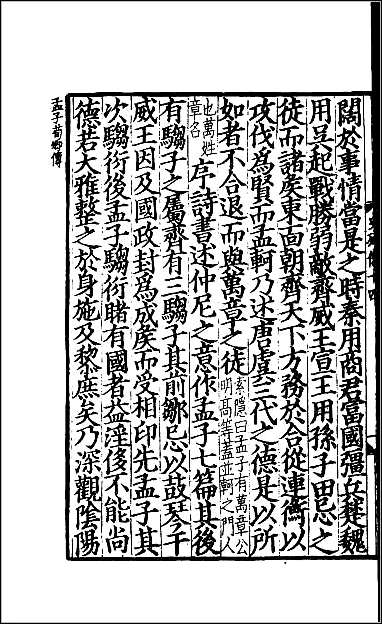 闊於事情當是之時秦用商君富國彊兵楚魏
用吳起戰勝弱敵齊威王宣王用孫子田忌之
徒而諸侯東面朝齊天下方務於合從連衡以
攻伐為賢而孟軻乃述唐虞三代之德是以所
如者不合退而與萬章之徒索隱曰孟子有萬章公明高等蓋並軻之門人
也萬姓章名序詩書述仲尼之意作孟子七篇其後
有騶子之屬齊有三騶子其前鄒忌以鼓琴干
威王因及國政封為成侯而受相印先孟子其
次騶衍後孟子騶衍睹有國者益淫侈不能尚
德若大雅整之於身施及黎庶矣乃深觀陰陽
孟子荀卿傳